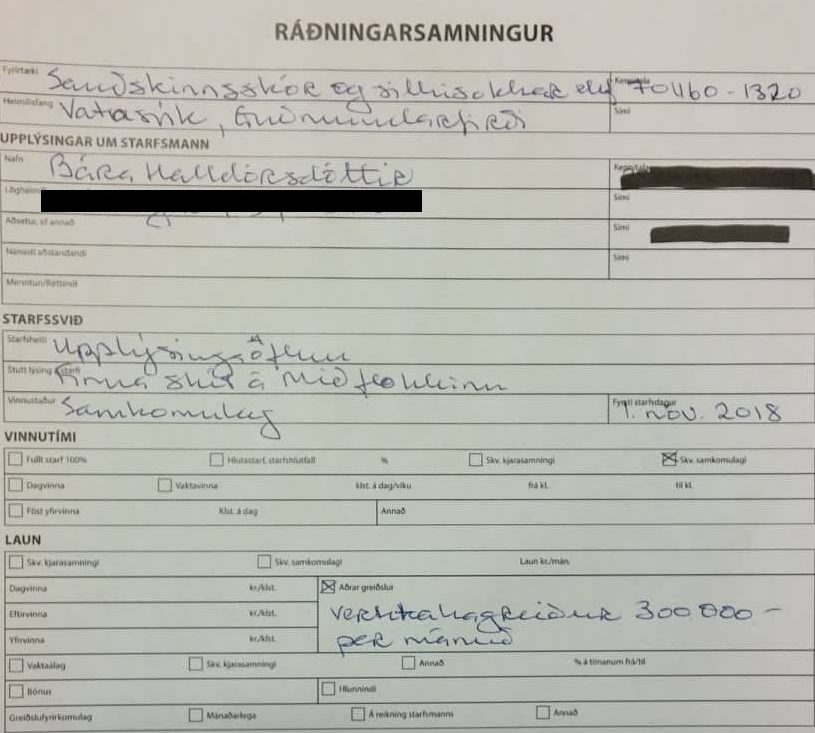 RÁÐNINGARSAMNINGUR
Fyrirtæki Sauðskinnsskór og silkisokkar ehf Kennitala 701160-1320
Heimilisfang Vatasvík, Guðmundarfirði Sími
UPPLÝSINGAR UM STARFSMANN
Nafn Bára Halldórsdóttir Kennitala
Lögheimili Sími
Aðsetur, ef annað Sími
Nánasti aðstandandi Sími
Menntun/Réttindi
STARFSSVIÐ
Starfsheiti Upplýsingaöflun
Stutt lýsing á starfi Finna skít á Miðflokkinn
Vinnustaður Samkomulag Fyrsti starfsdagur 1. nóv. 2018
VINNUTÍMI
Fullt starf 100% Hlutastarf, starfshlutfall % Skv. kjarasamningi Skv. samkomulagi
Dagvinna Vaktavinna klst. á dag/viku frá kl. til kl.
Föst yfirvinna Klst. á dag Annað
LAUN
Skv. kjarasamningi Skv. samkomulagi Laun kr./mán.
Dagvinna kr./klst. Aðrar greiðslur
Eftirvinna kr./klst. Verktakagreiður 300 000 -
Yfirvinna kr./klst. per mánuð
Vaktaálag Skv. kjarasamningi Annað % á tímanum frá/til
Bónus Hlunnindi
Greiðslufyrirkomulag Mánaðarlega Á reikning starfsmanns Annað